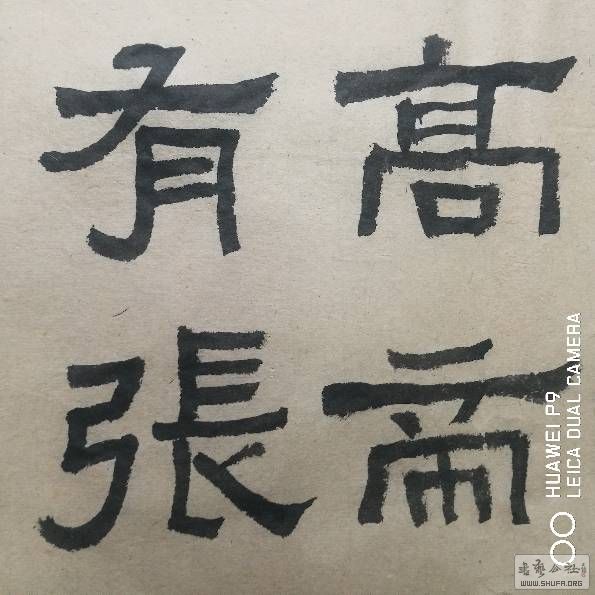 高帝
有張
HUAWEI P9
LEICA DUAL CAMERA
書藝公社
WWW.SHUFA.ORG